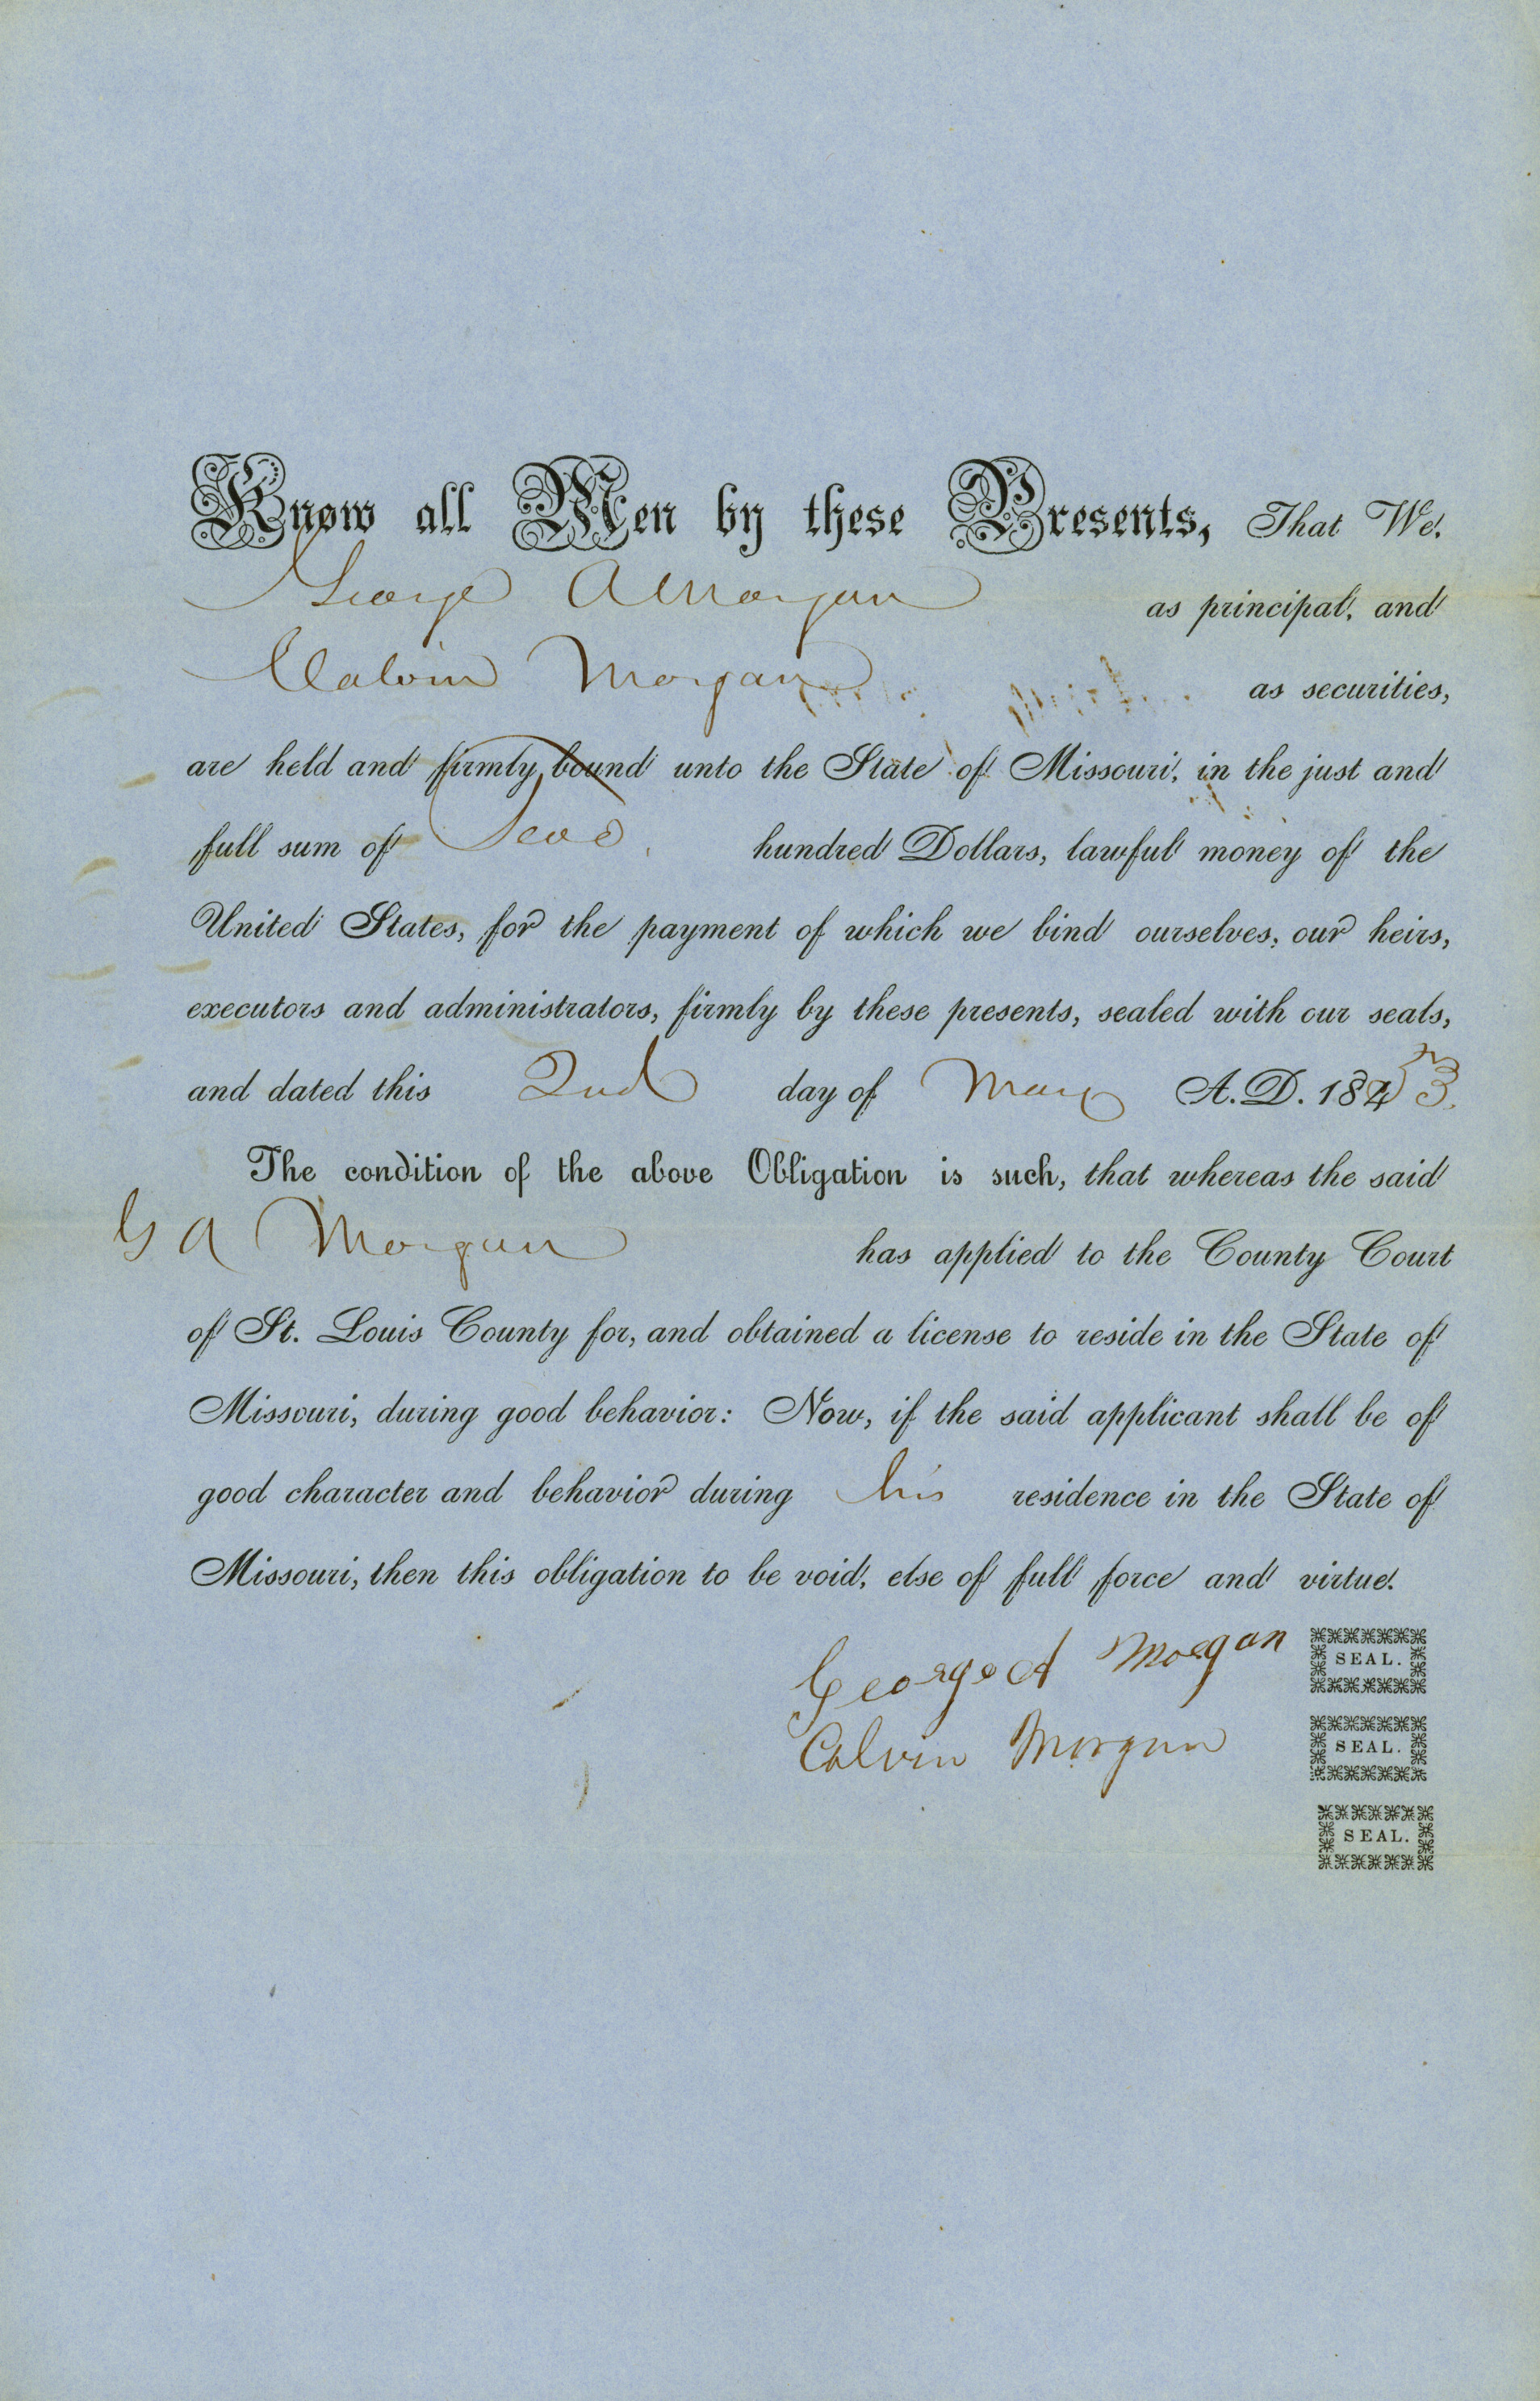 Know all Men by these Presents, That We,
George A Morgan as principal, and
Calvin Morgan as securities,
are held and firmly bound unto the State of Missouri, in the just and
full sum of hundred Dollars, lawful money of the
United States, for the payment of which we bind ourselves, our heirs,
executors and administrators, firmly by these presents, sealed with our seals,
and dated this 2nd day of May A. D. 1853.
The condition of the above Obligation is such, that whereas the said
G A Morgan has applied to the County Court
of St. Louis County for, and obtained a license to reside in the State of
Missouri, during good behavior: Now, if the said applicant shall be of
good character and behavior during his residence in the State of
Missouri, then this obligation to be void, else of full force and virtue.
George A Morgan SEAL.
Calvin Morgan SEAL.
SEAL.